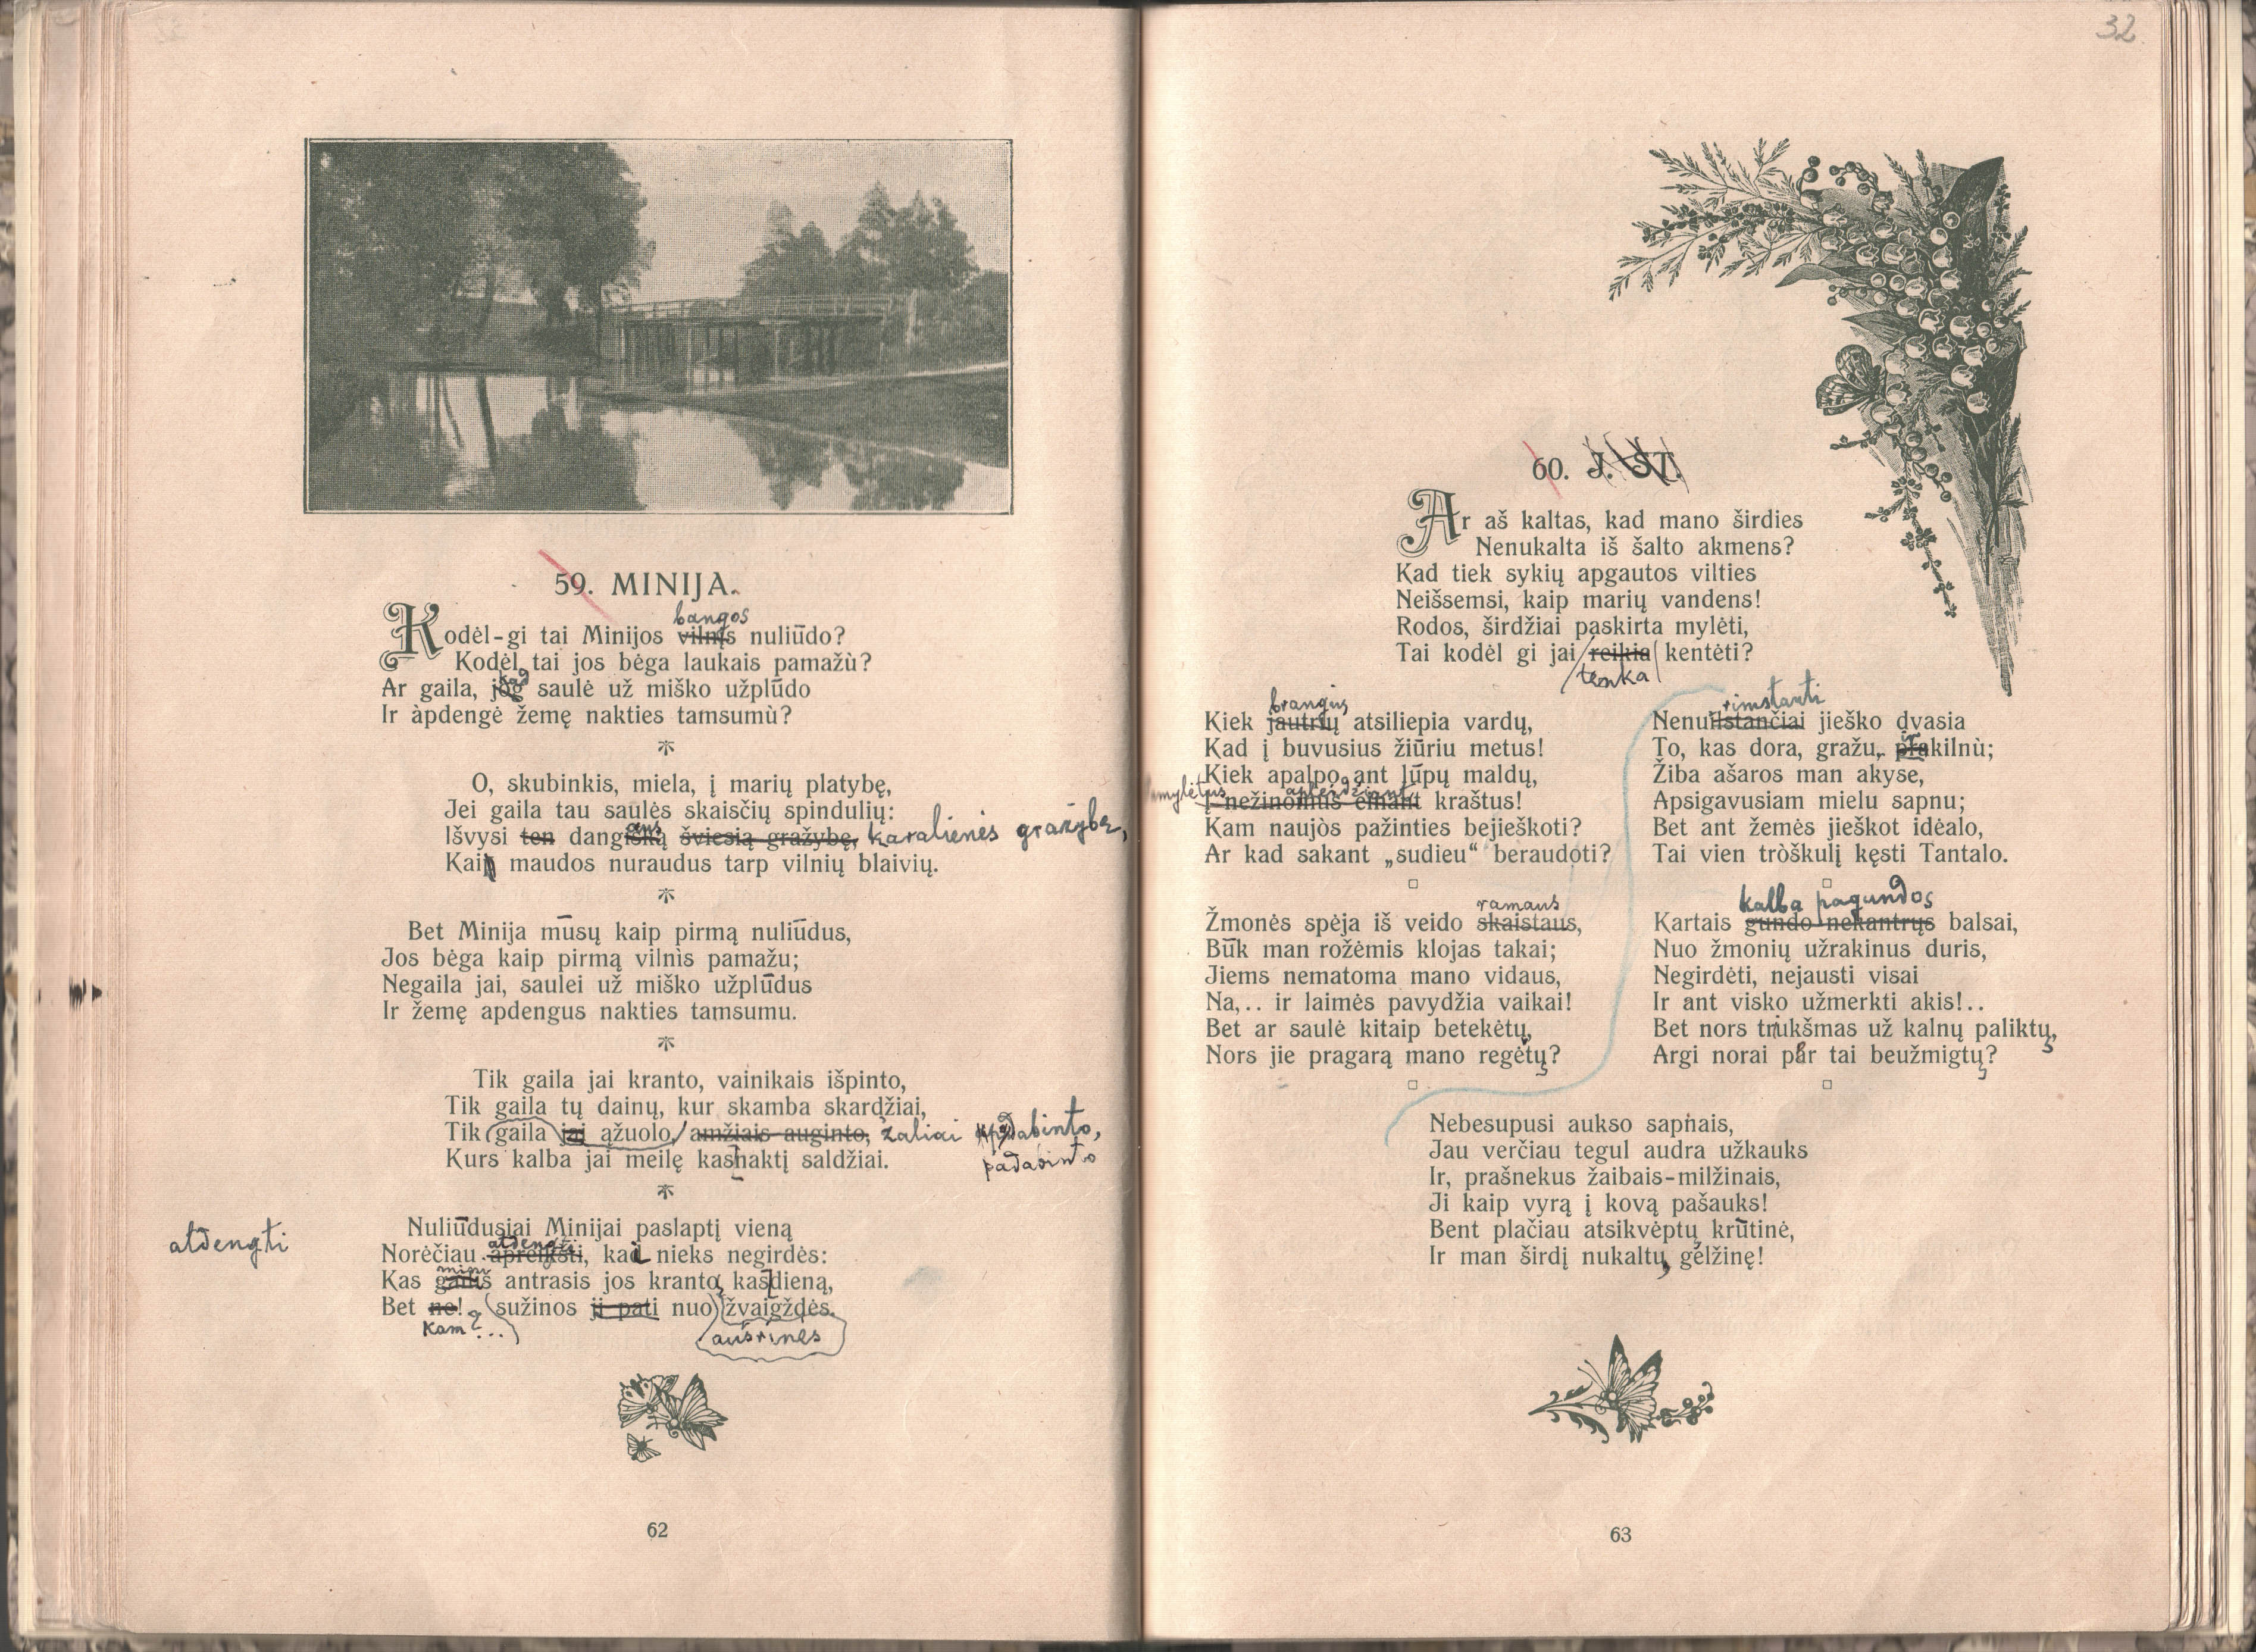 32
59. MINIJA.
bangos
Kodėl-gi tai Minijos vilnis nuliūdo?
Kodėl tai jos bėga laukais pamažù?
kad
Ar gaila, jog saulė už miško užplūdo
Ir àpdengė žemę nakties tamsumù?
*
O, skubinkis, miela, į marių platybę,
Jei gaila tau saulės skaisčių spindulių:
aus
Išvysi ten dangišką šviesią gražybę, karalienės gražybę,
Kaip maudos nuraudus tarp vilnių blaivių.
*
Bet Minija mūsų kaip pirmą nuliūdus,
Jos bėga kaip pirmą vilnìs pamažu;
Negaila jai, saulei už miško užplūdus
Ir žemę apdengus nakties tamsumu.
*
Tik gaila jai kranto, vainikais išpinto,
Tik gaila tų dainų, kur skamba skardžiai,
Tik gaila jai ąžuolo, amžiais auginto, žaliai
padabinto
Kurs kalba jai meilę kasnaktį saldžiai.
*
Nuliūdusiai Minijai paslaptį vieną
atdengti
atdengti
Norėčiau apreikšti, kad nieks negirdės:
mins
Kas gans antrasis jos krantą kasdieną,
Bet ne! sužinos ji pati nuo žvaigždės.
Kam?...
aušrinės
62
60. J. ST.
Ar aš kaltas, kad mano širdies
Nenukalta iš šalto akmens?
Kad tiek sykių apgautos vilties
Neišsemsi, kaip marių vandens!
Rodos, širdžiai paskirta mylėti,
Tai kodėl gi jai reikia kentėti?
tenka
brangių
Kiek jautrių atsiliepia vardų,
Kad į buvusius žiūriu metus!
Kiek apalpo ant lūpų maldų,
mylėtus apleidžiant
Į nežinomus einant kraštus!
Kam naujòs pažinties bejieškoti?
Ar kad sakant „sudieu“ beraudoti?
□
ramaus
Žmonės spėja iš veido skaistaus,
Būk man rožėmis klojas takai;
Jiems nematoma mano vidaus,
Na,.. ir laimės pavydžia vaikai!
Bet ar saulė kitaip betekėtų,
Nors jie pragarą mano regėtų?
□
rimstanti
Nenuilstančiai jieško dvasia
ir
To, kas dora, gražu, prakilnù;
Žiba ašaros man akyse,
Apsigavusiam mielu sapnu;
Bet ant žemės jieškot idėalo,
Tai vien tròškulį kęsti Tantalo.
□
kalba pagundos
Kartais gundo nekantrųs balsai,
Nuo žmonių užrakinus duris,
Negirdėti, nejausti visai
Ir ant visko užmerkti akis!..
Bet nors triukšmas už kalnų paliktų,
Argi norai par tai beužmigtų?
□
Nebesupusi aukso sapnais,
Jau verčiau tegul audra užkauks
Ir, prašnekus žaibais-milžinais,
Ji kaip vyrą į kovą pašauks!
Bent plačiau atsikvėptų krūtinė,
Ir man širdį nukaltų gelžinę!
63